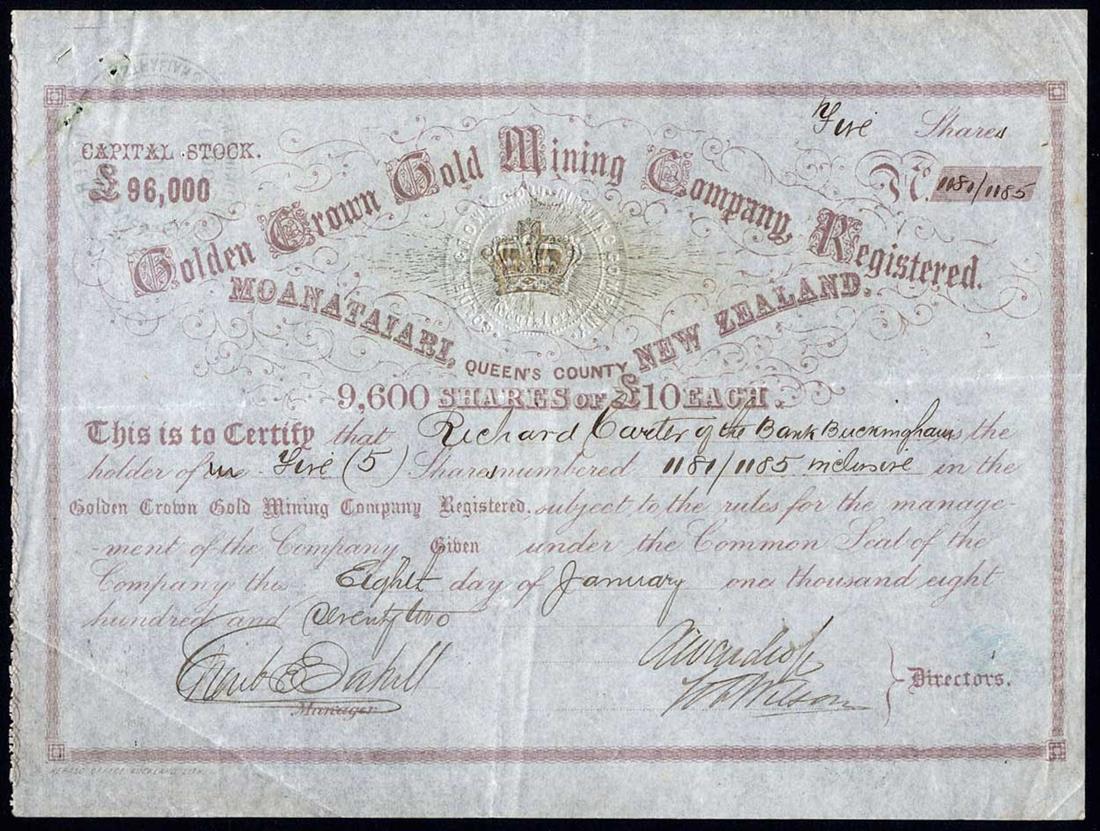 Five Shares
CAPITAL STOCK.
£96,000
No. 1181/1185
Golden Crown Gold Mining Company, Registered.
MOANATAIARI, QUEEN'S COUNTY NEW ZEALAND.
9,600 SHARES OF £10 EACH.
This is to Certify that Richard Carter of the Bank Buckingham is the
holder of Five (5) Shares numbered 1181/1185 inclusive in the
Golden Crown Gold Mining Company Registered, subject to the rules for the manage-
-ment of the Company Given under the Common Seal of the
Company this Eighth day of January one thousand eight
hundred and Seventy two
Manager
Directors.
HERALD OFFICE AUCKLAND